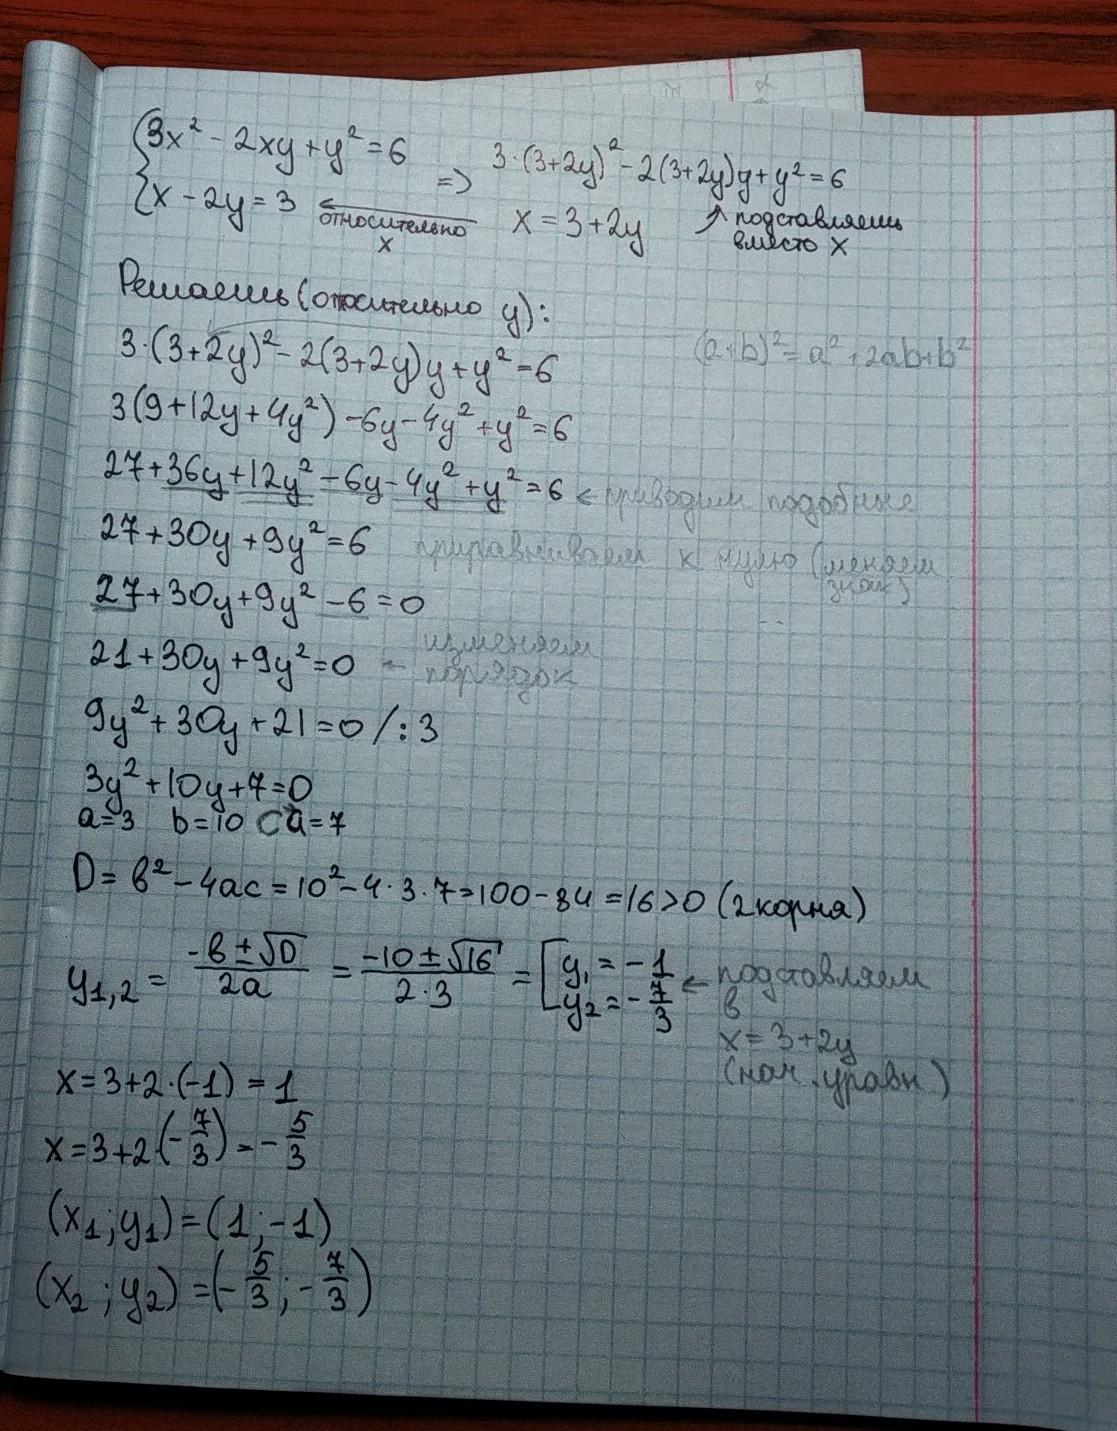 3x² - 2xy + y² = 6
x - 2y = 3 ← относительно x
=> 3·(3+2y)² - 2(3+2y)y + y² = 6
x = 3+2y
↗ подставляешь вместо x
Решаешь (относительно y):
3·(3+2y)² - 2(3+2y)y + y² = 6
(a+b)² = a² + 2ab + b²
3(9+12y+4y²) - 6y - 4y² + y² = 6
27 + 36y + 12y² - 6y - 4y² + y² = 6 ← приводим подобные
27 + 30y + 9y² = 6 приравниваем к нулю (меняем знак)
27 + 30y + 9y² - 6 = 0
21 + 30y + 9y² = 0 ← изменяем порядок
9y² + 30y + 21 = 0 /:3
3y² + 10y + 7 = 0
a=3 b=10 c=7
D = b² - 4ac = 10² - 4·3·7 = 100 - 84 = 16 > 0 (2 корня)
y1,2 = (-b ± √D)/(2a) = (-10 ± √16)/(2·3) = [ y1 = -1
y2 = -7/3
← подставляем
в
x = 3+2y
(нач. уравн)
x = 3+2·(-1) = 1
x = 3+2·(-7/3) = -5/3
(x1; y1) = (1; -1)
(x2; y2) = (-5/3; -7/3)